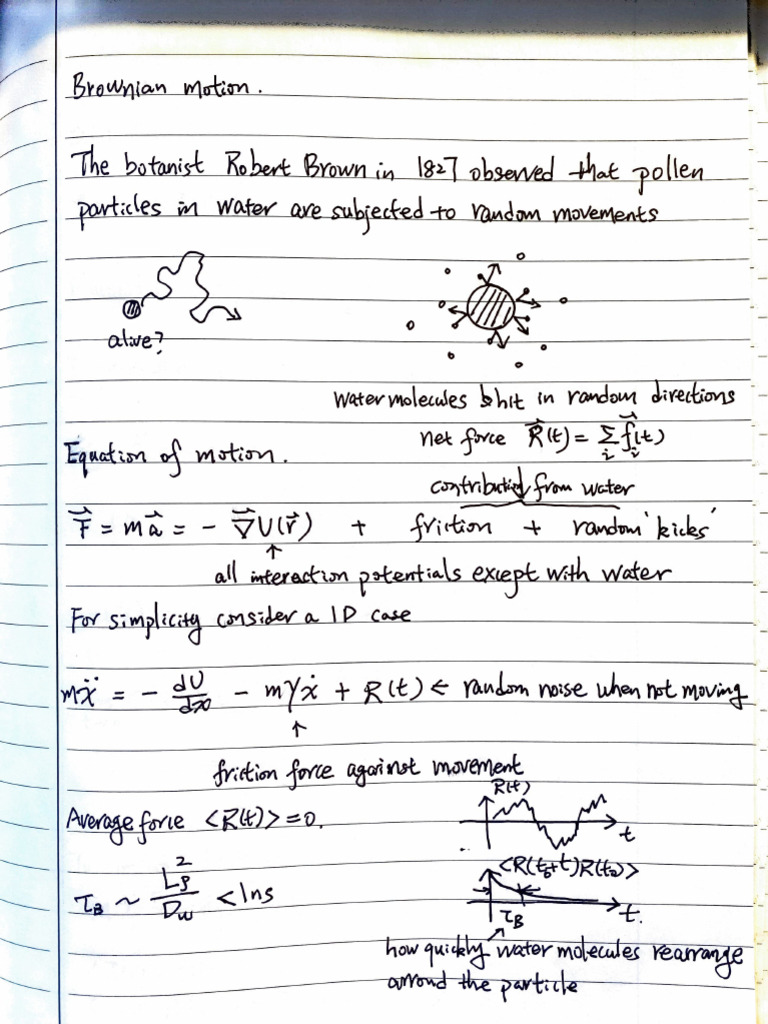 Brownian motion.
The botanist Robert Brown in 1827 observed that pollen
particles in water are subjected to random movements
alive?
Water molecules hit in random directions
net force R⃗(t) = Σ_i f⃗_i(t)
Equation of motion.
contributed from water
F⃗ = ma⃗ = - ∇⃗U(r⃗) + friction + random 'kicks'
↑
all interaction potentials except with water
For simplicity consider a 1D case
mẍ = - dU/dx - mγẋ + R(t) ← random noise when not moving
↑
friction force against movement
R(t)
Average force <R(t)> = 0.
t
<R(t₀+t)R(t₀)>
τ_B ~ L_ρ²/D_w < 1ns
τ_B
t.
how quickly water molecules rearrange
arround the particle